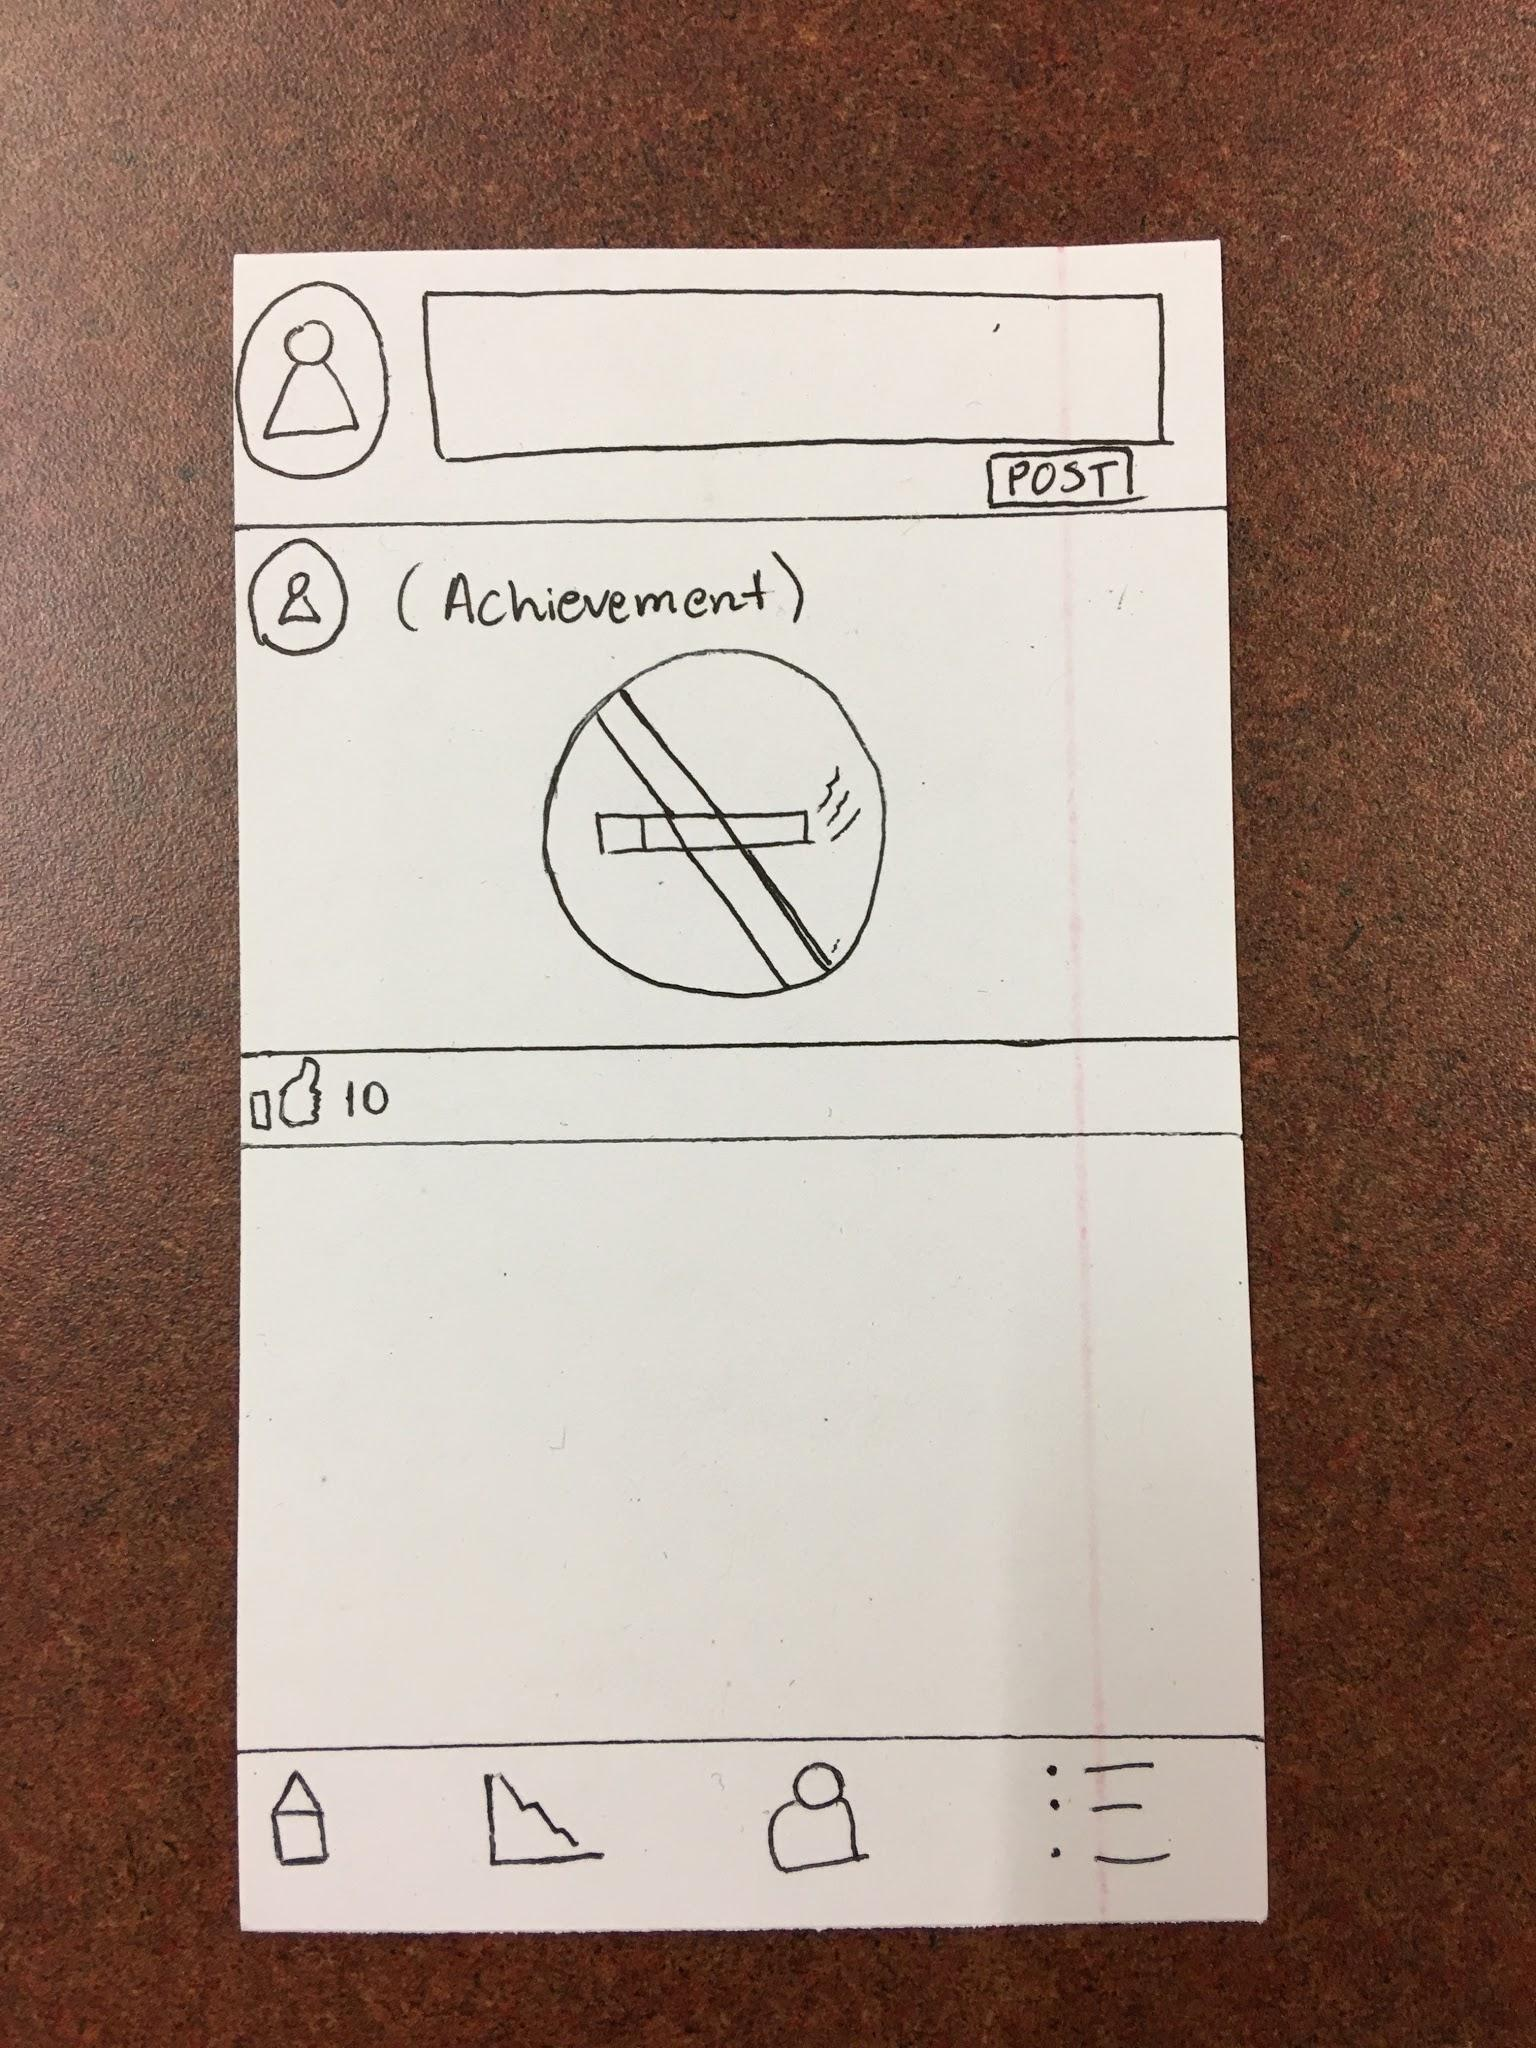 POST
(Achievement)
10